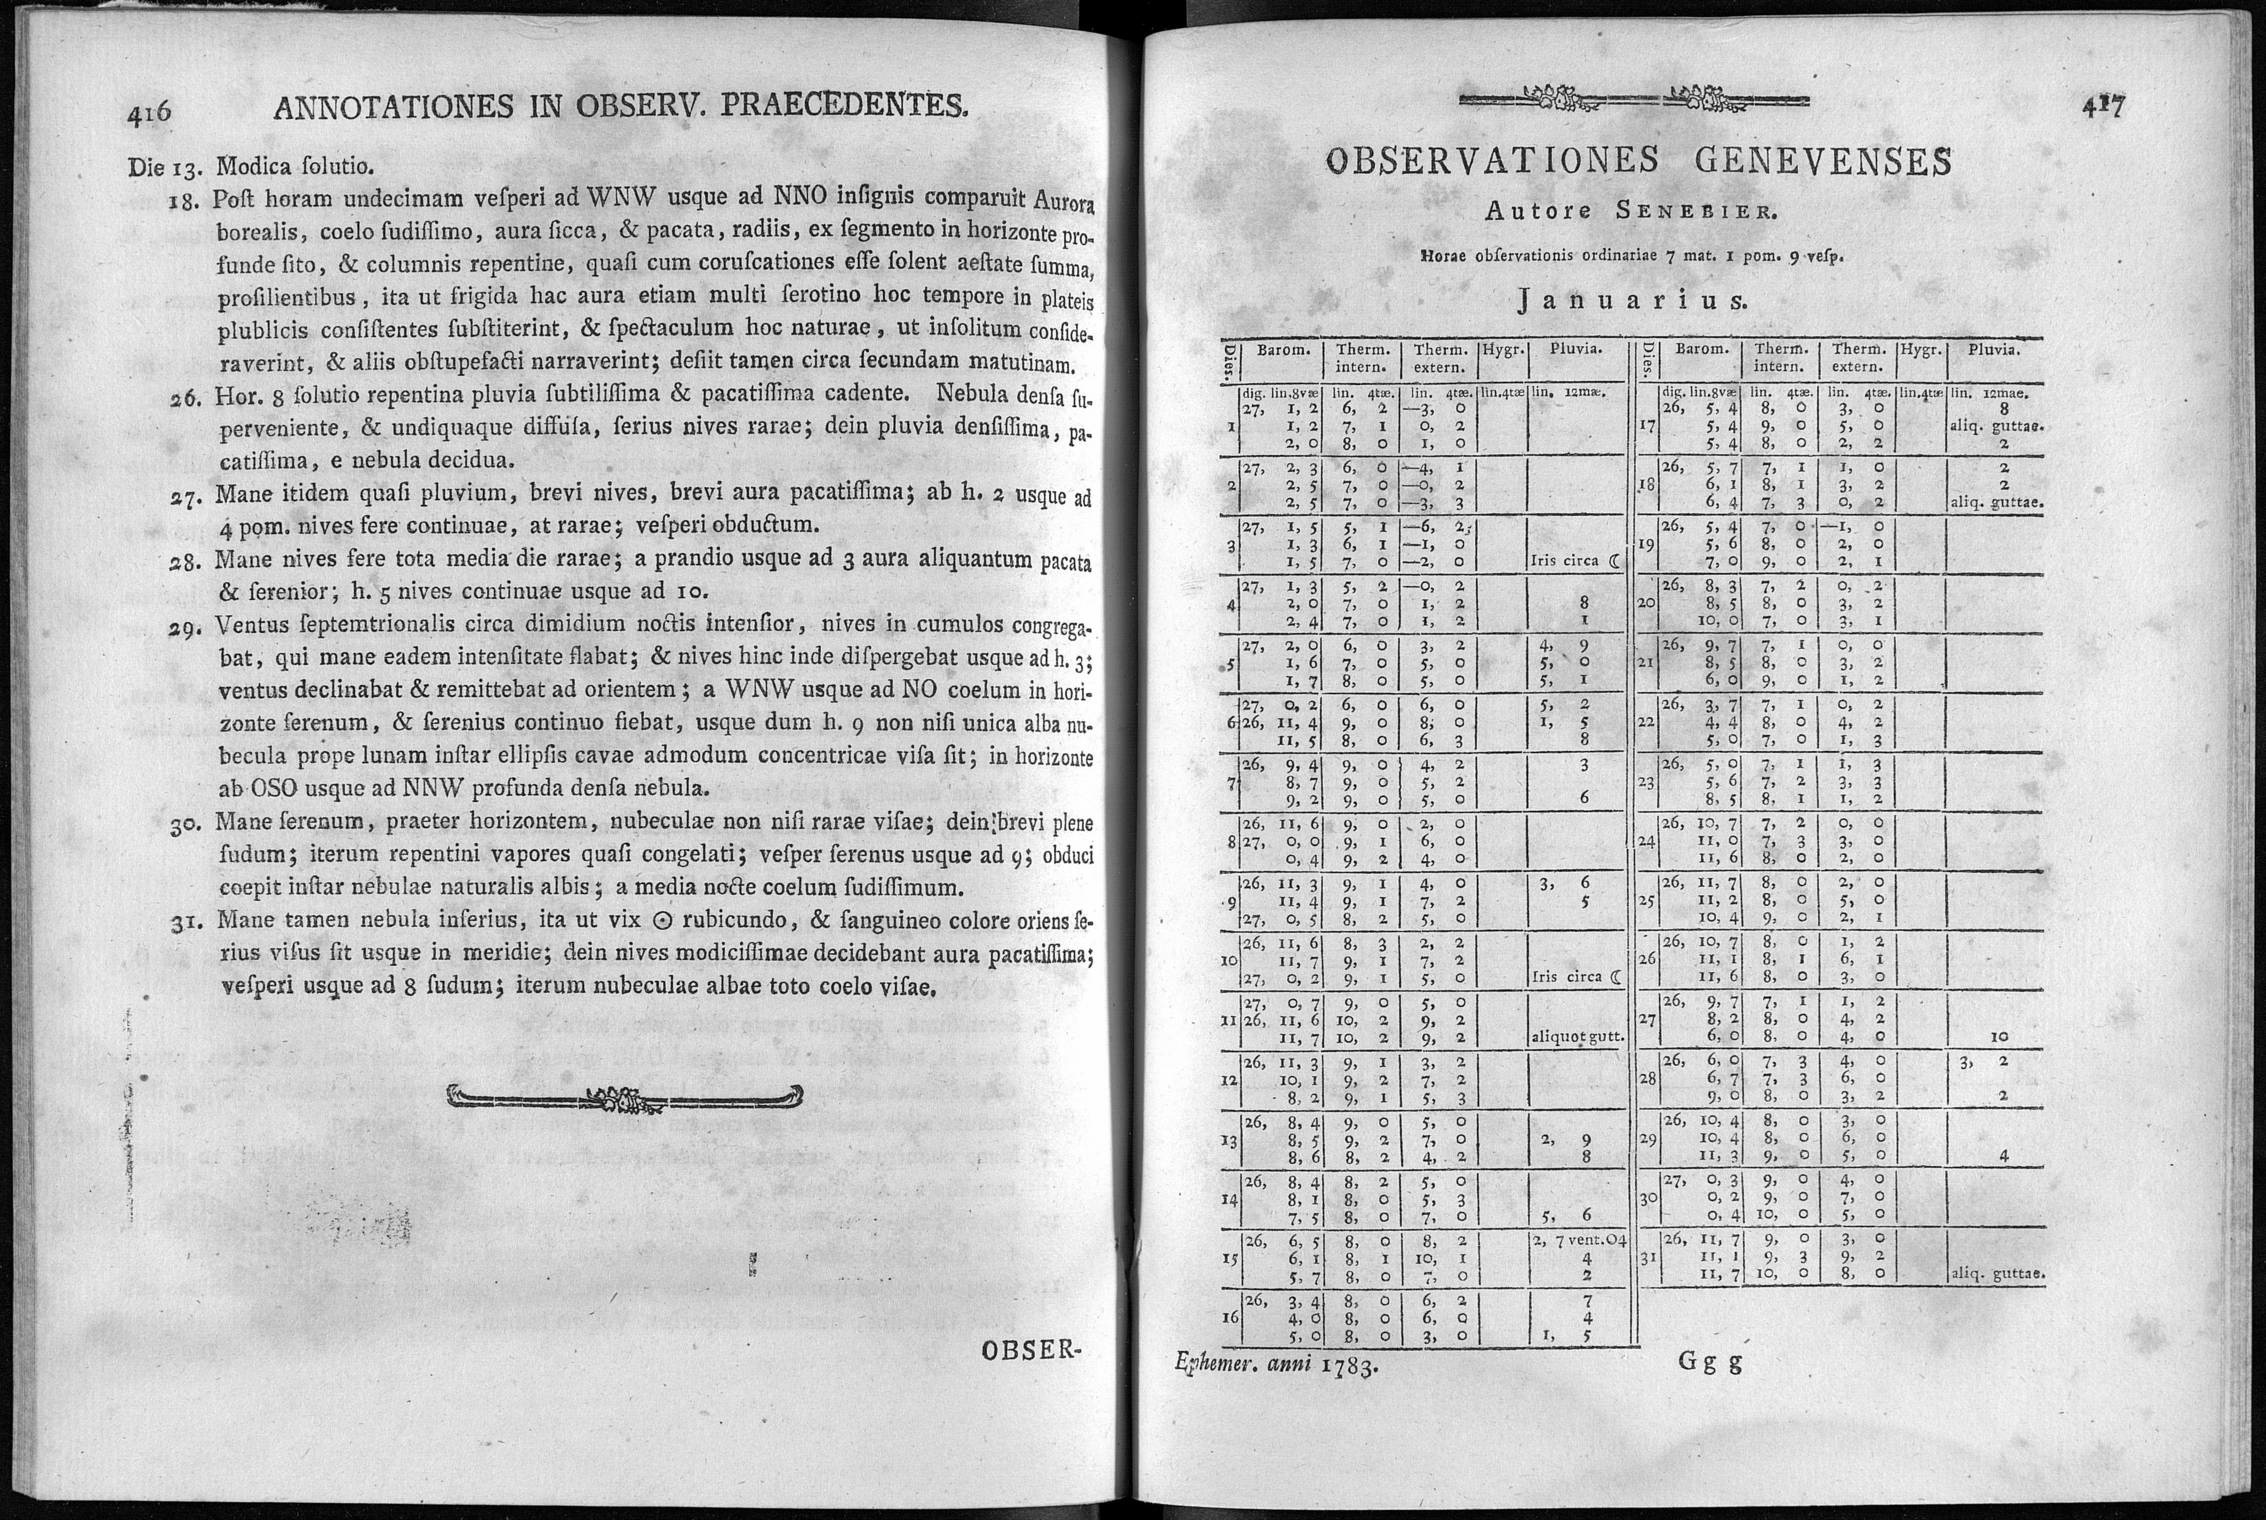 416 ANNOTATIONES IN OBSERV. PRAECEDENTES.
Die 13. Modica ſolutio.
18. Poſt horam undecimam veſperi ad WNW usque ad NNO inſignis comparuit Aurora
borealis, coelo ſudiſſimo, aura ſicca, & pacata, radiis, ex ſegmento in horizonte pro-
funde ſito, & columnis repentine, quaſi cum coruſcationes eſſe ſolent aeſtate ſumma,
proſilientibus, ita ut frigida hac aura etiam multi ſerotino hoc tempore in plateis
plublicis conſiſtentes ſubſtiterint, & ſpectaculum hoc naturae, ut inſolitum conſide-
raverint, & aliis obſtupefacti narraverint; deſiit tamen circa ſecundam matutinam.
26. Hor. 8 ſolutio repentina pluvia ſubtiliſſima & pacatiſſima cadente. Nebula denſa ſu-
perveniente, & undiquaque diffuſa, ſerius nives rarae; dein pluvia denſiſſima, pa-
catiſſima, e nebula decidua.
27. Mane itidem quaſi pluvium, brevi nives, brevi aura pacatiſſima; ab h. 2 usque ad
4 pom. nives fere continuae, at rarae; veſperi obductum.
28. Mane nives fere tota media die rarae; a prandio usque ad 3 aura aliquantum pacata
& ſerenior; h. 5 nives continuae usque ad 10.
29. Ventus ſeptemtrionalis circa dimidium noctis intenſior, nives in cumulos congrega-
bat, qui mane eadem intenſitate flabat; & nives hinc inde diſpergebat usque ad h. 3;
ventus declinabat & remittebat ad orientem; a WNW usque ad NO coelum in hori-
zonte ſerenum, & ſerenius continuo fiebat, usque dum h. 9 non niſi unica alba nu-
becula prope lunam inſtar ellipſis cavae admodum concentricae viſa ſit; in horizonte
ab OSO usque ad NNW profunda denſa nebula.
30. Mane ſerenum, praeter horizontem, nubeculae non niſi rarae viſae; dein brevi plene
ſudum; iterum repentini vapores quaſi congelati; veſper ſerenus usque ad 9; obduci
coepit inſtar nebulae naturalis albis; a media nocte coelum ſudiſſimum.
31. Mane tamen nebula inferius, ita ut vix ☉ rubicundo, & ſanguineo colore oriens ſe-
rius viſus ſit usque in meridie; dein nives modiciſſimae decidebant aura pacatiſſima;
veſperi usque ad 8 ſudum; iterum nubeculae albae toto coelo viſae.
OBSER-
417
OBSERVATIONES GENEVENSES
Autore SENEBIER.
Horae obſervationis ordinariae 7 mat. 1 pom. 9 veſp.
Januarius.
Dies. Barom. Therm. intern. Therm. extern. Hygr. Pluvia.
dig. lin. 8væ lin. 4tæ. lin. 4tæ. lin. 4tæ lin. 12mæ.
27, 1, 2 6, 2 —3, 0
1 1, 2 7, 1 0, 2
2, 0 8, 0 1, 0
27, 2, 3 6, 0 —4, 1
2 2, 5 7, 0 —0, 2
2, 5 7, 0 —3, 3
27, 1, 5 5, 1 —6, 2
3 1, 3 6, 1 —1, 0
1, 5 7, 0 —2, 0 Iris circa ☾
27, 1, 3 5, 2 —0, 2
4 2, 0 7, 0 1, 2 8
2, 4 7, 0 1, 2 1
27, 2, 0 6, 0 3, 2 4, 9
5 1, 6 7, 0 5, 0 5, 0
1, 7 8, 0 5, 0 5, 1
27, 0, 2 6, 0 6, 0 5, 2
6 26, 11, 4 9, 0 8, 0 1, 5
11, 5 8, 0 6, 3 8
26, 9, 4 9, 0 4, 2 3
7 8, 7 9, 0 5, 2
9, 2 9, 0 5, 0 6
26, 11, 6 9, 0 2, 0
8 27, 0, 0 9, 1 6, 0
0, 4 9, 2 4, 0
26, 11, 3 9, 1 4, 0 3, 6
9 11, 4 9, 1 7, 2 5
27, 0, 5 8, 2 5, 0
26, 11, 6 8, 3 2, 2
10 11, 7 9, 1 7, 2
27, 0, 2 9, 1 5, 0 Iris circa ☾
27, 0, 7 9, 0 5, 0
11 26, 11, 6 10, 2 9, 2
11, 7 10, 2 9, 2 aliquot gutt.
26, 11, 3 9, 1 3, 2
12 10, 1 9, 2 7, 2
8, 2 9, 1 5, 3
26, 8, 4 9, 0 5, 0
13 8, 5 9, 2 7, 0 2, 9
8, 6 8, 2 4, 2 8
26, 8, 4 8, 2 5, 0
14 8, 1 8, 0 5, 3
7, 5 8, 0 7, 0 5, 6
26, 6, 5 8, 0 8, 2 2, 7 vent. O4
15 6, 1 8, 1 10, 1 4
5, 7 8, 0 7, 0 2
26, 3, 4 8, 0 6, 2 7
16 4, 0 8, 0 6, 0 4
5, 0 8, 0 3, 0 1, 5
Dies. Barom. Therm. intern. Therm. extern. Hygr. Pluvia.
dig. lin. 8væ lin. 4tæ. lin. 4tæ. lin. 4tæ lin. 12mae.
26, 5, 4 8, 0 3, 0 8
17 5, 4 9, 0 5, 0 aliq. guttae.
5, 4 8, 0 2, 2 2
26, 5, 7 7, 1 1, 0 2
18 6, 1 8, 1 3, 2 2
6, 4 7, 3 0, 2 aliq. guttae.
26, 5, 4 7, 0 —1, 0
19 5, 6 8, 0 2, 0
7, 0 9, 0 2, 1
26, 8, 3 7, 2 0, 2
20 8, 5 8, 0 3, 2
10, 0 7, 0 3, 1
26, 9, 7 7, 1 0, 0
21 8, 5 8, 0 3, 2
6, 0 9, 0 1, 2
26, 3, 7 7, 1 0, 2
22 4, 4 8, 0 4, 2
5, 0 7, 0 1, 3
26, 5, 0 7, 1 1, 3
23 5, 6 7, 2 3, 3
8, 5 8, 1 1, 2
26, 10, 7 7, 2 0, 0
24 11, 0 7, 3 3, 0
11, 6 8, 0 2, 0
26, 11, 7 8, 0 2, 0
25 11, 2 8, 0 5, 0
10, 4 9, 0 2, 1
26, 10, 7 8, 0 1, 2
26 11, 1 8, 1 6, 1
11, 6 8, 0 3, 0
26, 9, 7 7, 1 1, 2
27 8, 2 8, 0 4, 2
6, 0 8, 0 4, 0 10
26, 6, 0 7, 3 4, 0 3, 2
28 6, 7 7, 3 6, 0
9, 0 8, 0 3, 2 2
26, 10, 4 8, 0 3, 0
29 10, 4 8, 0 6, 0
11, 3 9, 0 5, 0 4
27, 0, 3 9, 0 4, 0
30 0, 2 9, 0 7, 0
0, 4 10, 0 5, 0
26, 11, 7 9, 0 3, 0
31 11, 1 9, 3 9, 2
11, 7 10, 0 8, 0 aliq. guttae.
Ephemer. anni 1783. Ggg